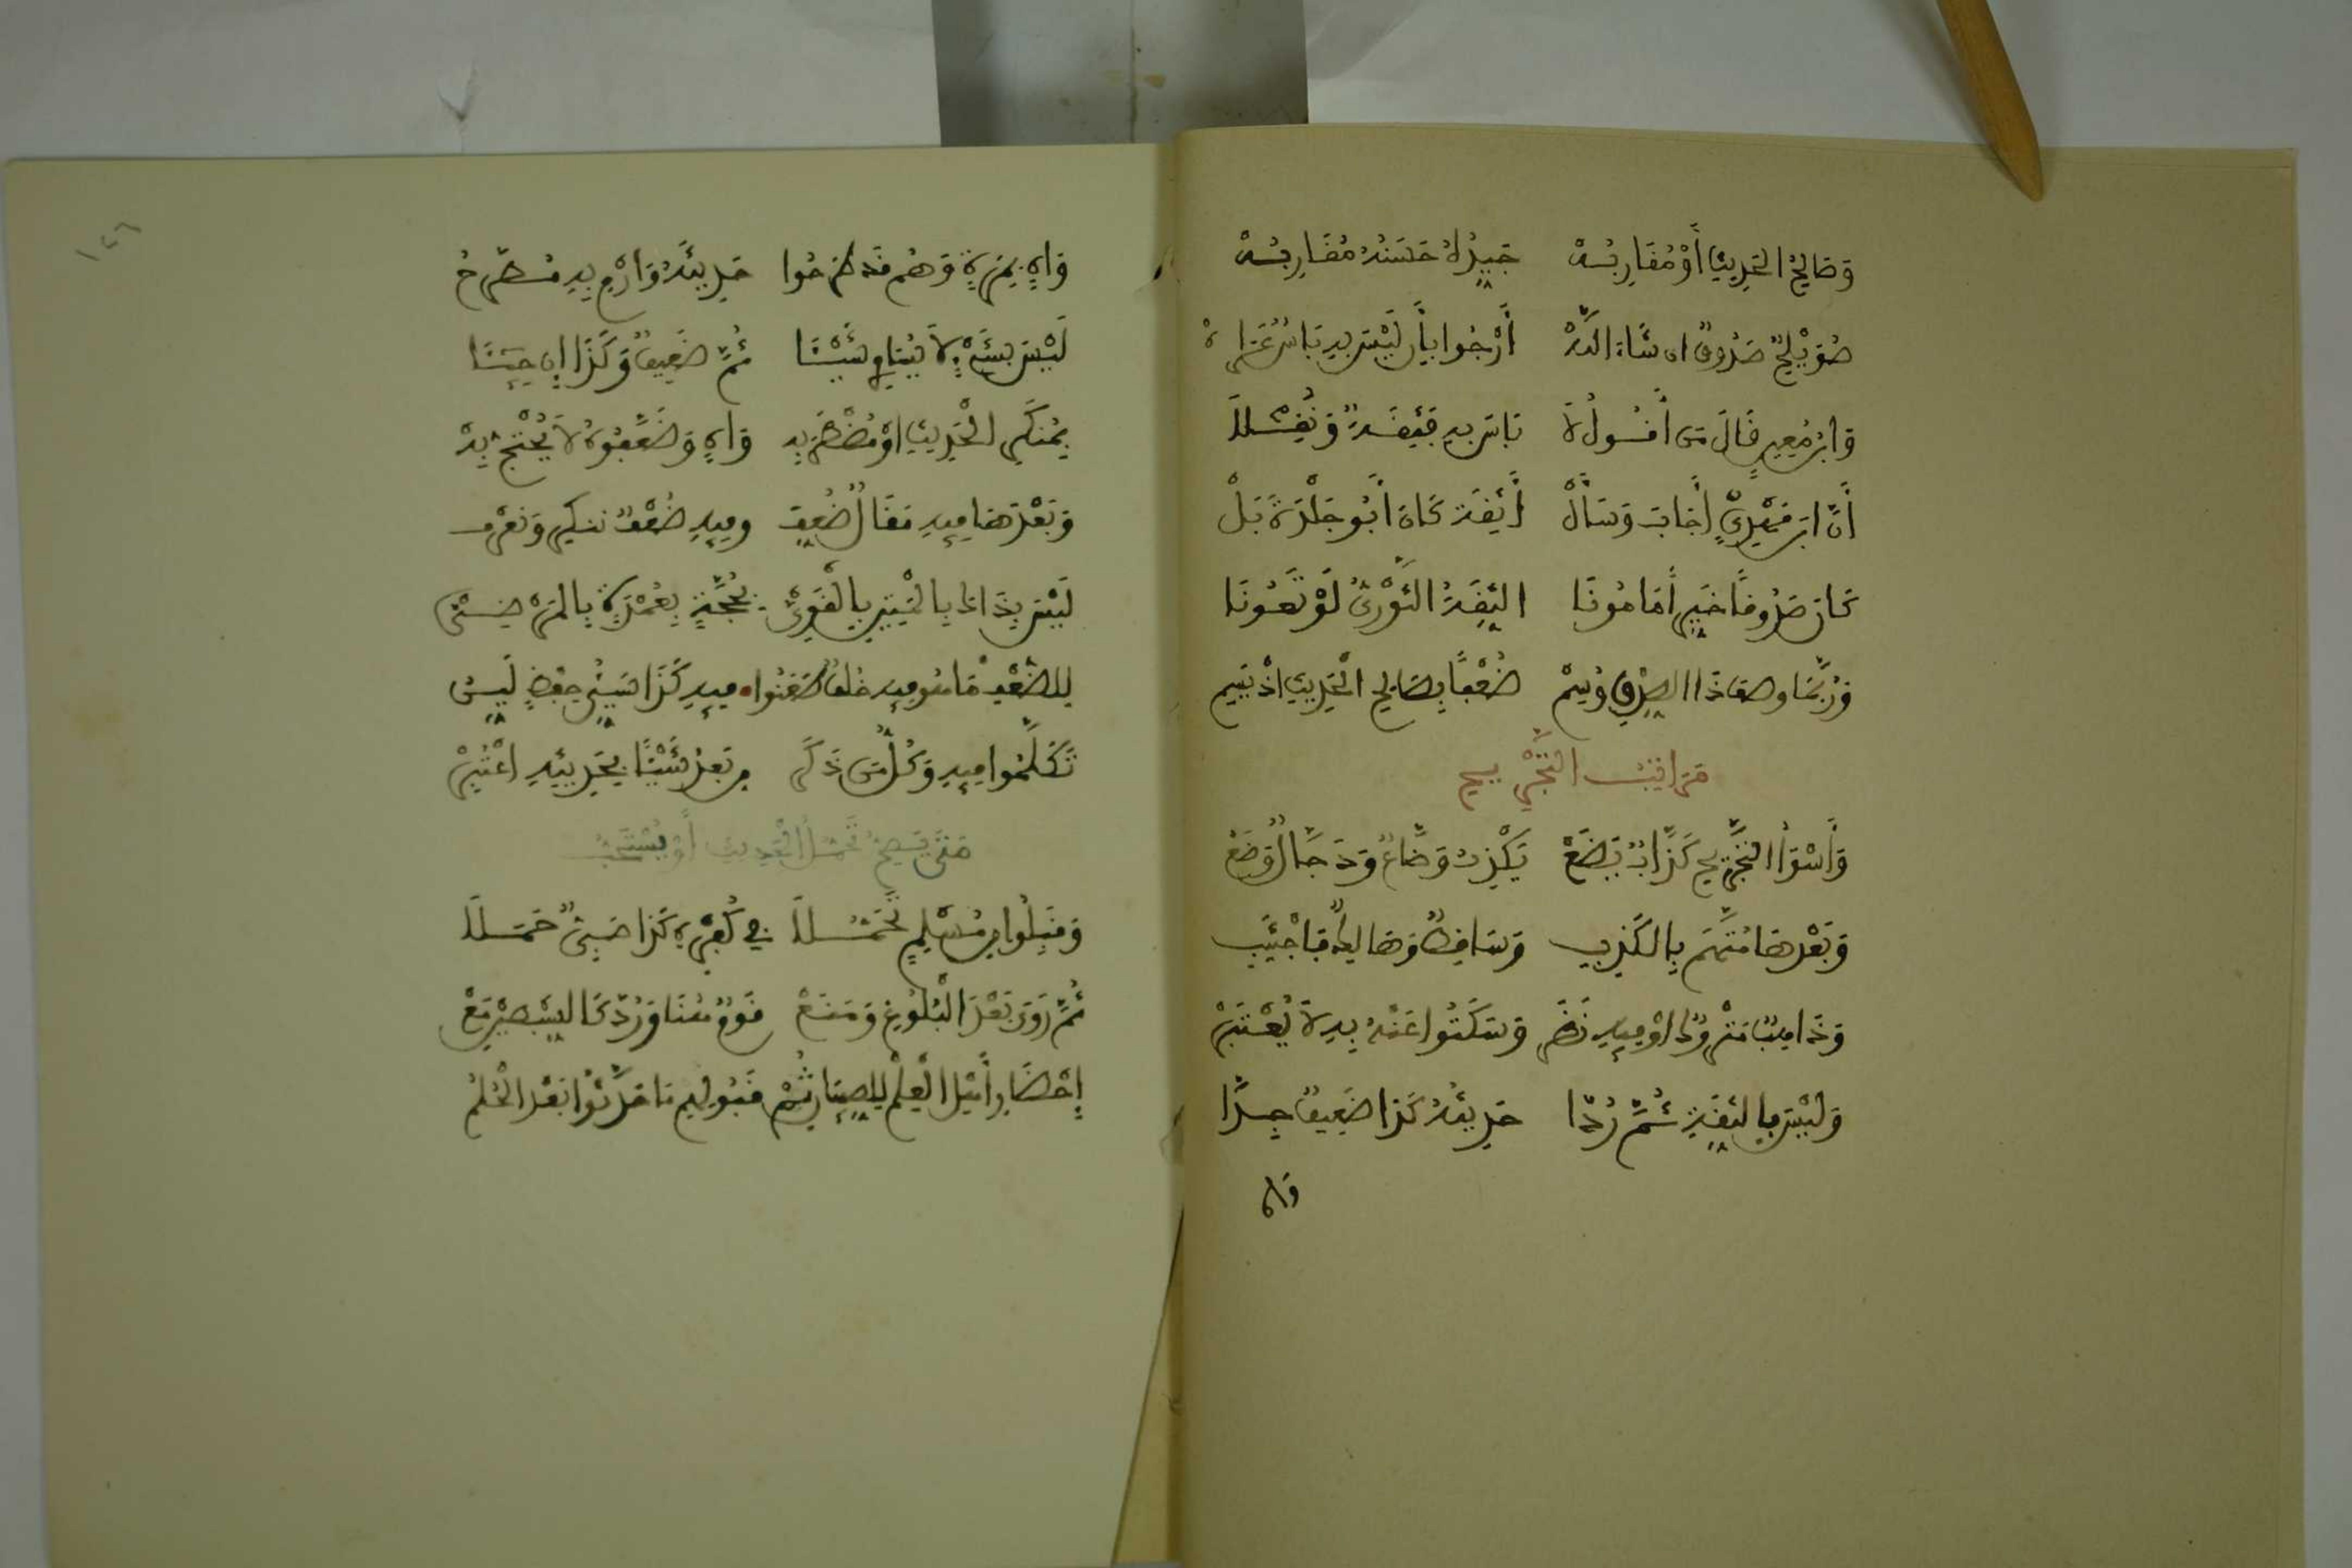 وَصَالِحُ الحَدِيثِ أَوْ مُقَارِبُهْ جَيِّدُهُ حَسَنُهُ مُقَارَبُهْ
صُوَيْلِحٌ صَدُوقٌ ان شَاءَ اللهْ أَرْجُوا بِأَن لَيْسَ بِهِ بَاسٌ عَرَاهْ
وَابْنُ مُعِينٍ قَالَ مَن أَقُولُ لَا بَاسَ بِهِ فَثِقَةٌ وَنُقِلَا
أَنَّ ابنَ مَهْدِيٍّ أَجَابَ مَن سَأَلْ أَثِقَةً كَانَ أَبُو خَلْدَةَ بَلْ
كَانَ صَدُوقًا خَيِّرًا مَامُونَا الثِّقَةُ الثَّوْرِيُّ لَوْ تَعُونَا
وَرُبَّمَا وصَفَ ذَا الصِّدْقِ وُسِمْ ضُعْفًا بِصَالِحِ الْحَدِيثِ اذْ يَسِمْ
مَرَاتِبُ التَّجْرِيحِ
وَأَسْوَأُ التَّجْرِيحِ كَذَّابٌ يَضَعْ يَكْذِبُ وَضَّاعٌ وَدَجَّالٌ وَضَعْ
وَبَعْدَهَا مُتَّهَمٌ بِالكَذِبِ وَسَاقِطٌ وَهَالِكٌ فَاجْتَنِبِ
وَذَاهِبٌ مَتْرُوكٌ اوْ فِيهِ نَظَرْ وَسَكَتُوا عَنْهُ بِهِ لَا يُعْتَبَرْ
وَلَيْسَ بِالثِّقَةِ ثُمَّ رُدَّا حَدِيثُهُ كَذَا ضَعِيفٌ جِدًّا
وَاهٍ
وَاهٍ بِمَرَّةٍ وَهُم قَد طَرَحُوا حَدِيثَهُ وَارْمِ بِهِ مُطَّرَحُ
لَيْسَ بِشَيْءٍ لَا يُسَاوِي شَيْئًا ثُمَّ ضَعِيفٌ وَكَذَا إِن جِيئَا
بِمُنكَرِ الْحَدِيثِ اوْ مُضْطَرِبِهْ وَاهٍ وَضَعَّفُوهُ لَا يُحْتَجُّ بِهْ
وَبَعْدَهَا فِيهِ مَقَالٌ ضُعِّفْ وفِيهِ ضُعْفٌ تنكِرُ وَتَعْرِفْ
لَيْسَ بِذَاكَ بِالْمَتِينِ بِالْقَوِيْ بِحُجَّةٍ بِعُمْدَةٍ بِالمَرْضِيْ
لِلضُّعْفِ مَا هُو فِيهِ خُلْفٌ طَعَنُوا فِيهِ كَذَا سَيِّئُ حِفْظٍ لَيِّنُ
تَكَلَّمُوا فِيهِ وَكُلُّ مَن ذُكِرْ مِن بَعْدُ شَيْئًا بِحَدِيثِهِ اعْتُبِرْ
مَتَى يَصِحُّ تَحَمُّلُ الْحَدِيثِ أَوْ يُسْتَحَبُّ
وَقَبِلُوا مِن مُسْلِمٍ تَحَمُّلَا فِي كُفْرِهِ كَذَا صَبِيٌّ حَمَلَا
ثُمَّ رَوَى بَعْدَ الْبُلُوغِ وَمَنَعْ قَوْمٌ هُنَا وَرُدَّ كَالسِّبْطَيْنِ مَعْ
إِحْضَارِ أَهْلِ الْعِلْمِ لِلصِّبْيَانِ ثُمْ قَبُولِهِم مَا حَدَّثُوا بَعْدَ الْحُلُمْ